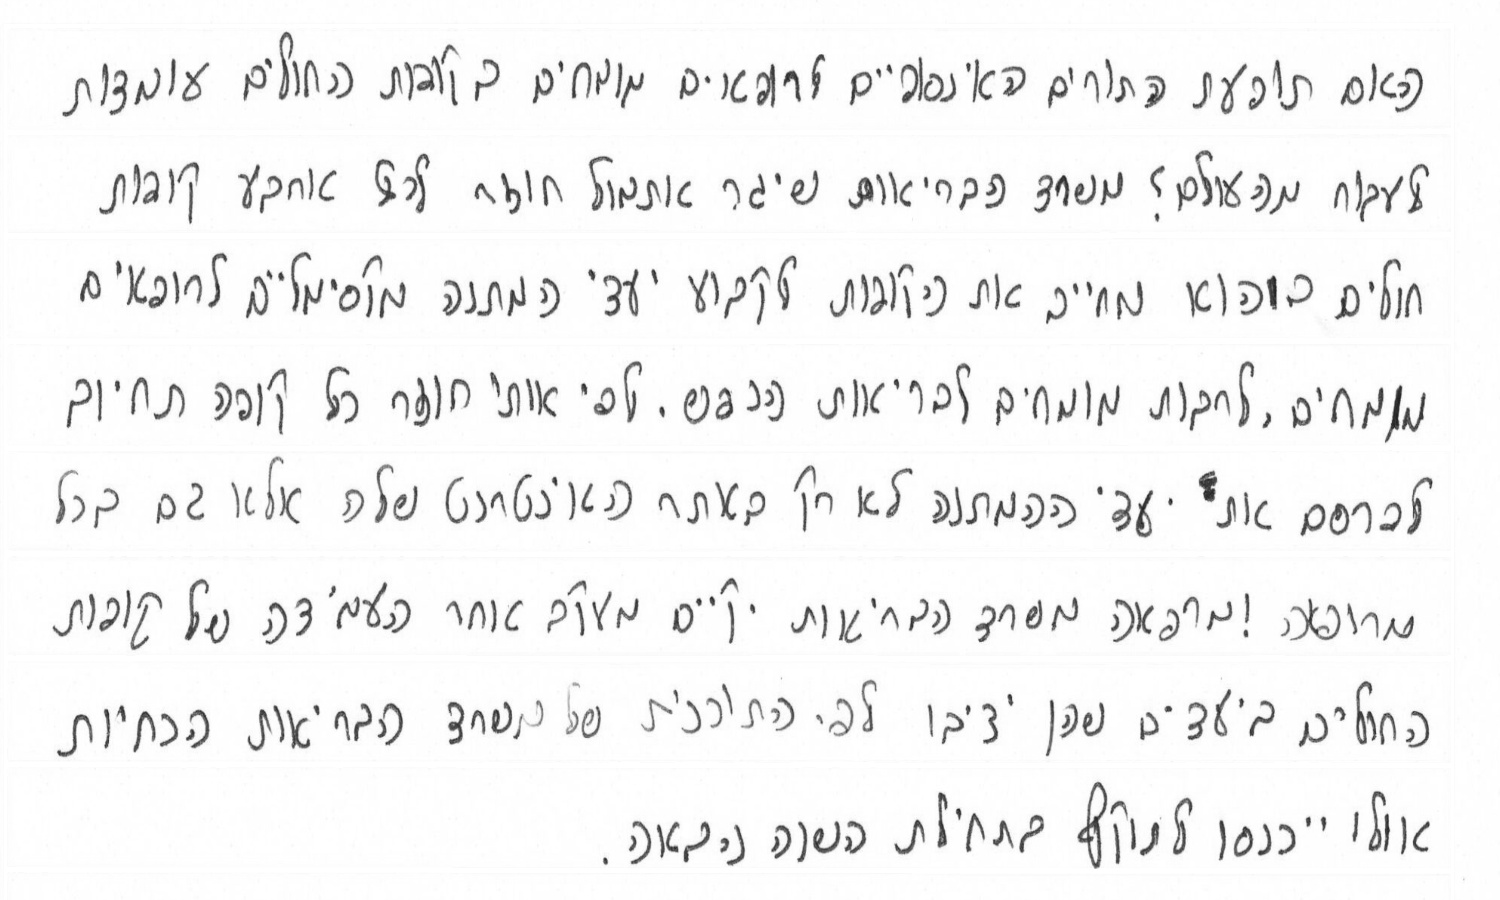 האם תופעת התורים האינסופיים לרופאים מומחים בקופות החולים עומדות
לעבור מהעולם? משרד הבריאות שיגר אתמול חוזר לכל ארבע קופות
חולים בו הוא מחייב את הקופות לקבוע יעדי המתנה מקסימליים לרופאים
מומחים, לרבות מומחים לבריאות הנפש. לפי אותו חוזר כל קופה תחויב
לפרסם את יעדי ההמתנה לא רק באתר האינטרנט שלה אלא גם בכל
מרופאה !מרפאה משרד הבריאות יקיים מעקב אחר העמידה של קופות
החולים ביעדים שהן יציבו לפי התוכנית של משרד הבריאות הנחיות
אוולו ייכנסו לתוקף בתחילת השנה הבאה.